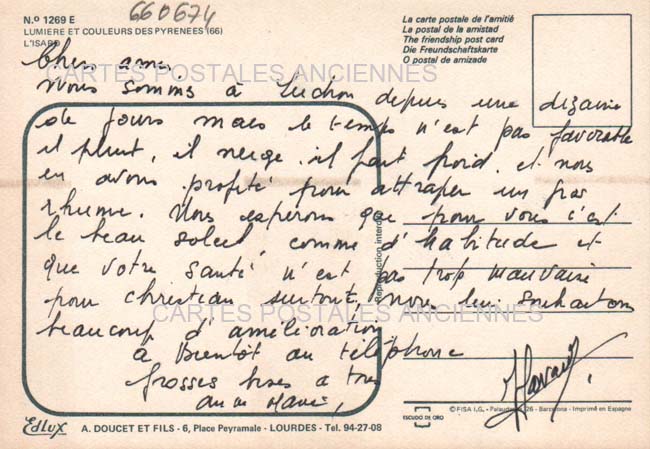 660674
N.º 1269 E
LUMIERE ET COULEURS DES PYRENEES (66)
L'ISARD
La carte postale de l'amitié
La postal de la amistad
The friendship post card
Die Freundschaftskarte
O postal de amizade
Chers amis,
CARTES POSTALES ANCIENNES
Nous sommes à Luchon depuis une dizaine
de jours mais le temps n'est pas favorable
il pleut, il neige il fait froid. et nous
en avons profité pour attraper un gros
rhume. Nous esperons que pour vous c'est
le beau soleil comme d'habitude et
que votre santé n'est pas trop mauvaise
pour christian surtout, nous lui souhaitons
CARTES POSTALES ANCIENNES
beaucoup d'amélioration
à Bientôt au téléphone
Grosses bises a tous
Reproduction interdite
EDLUX
A. DOUCET ET FILS - 6, Place Peyramale - LOURDES - Tel. 94-27-08
ESCUDO DE ORO
© FISA I.G. - Palaudarias, 26 - Barcelona - Imprimé en Espagne